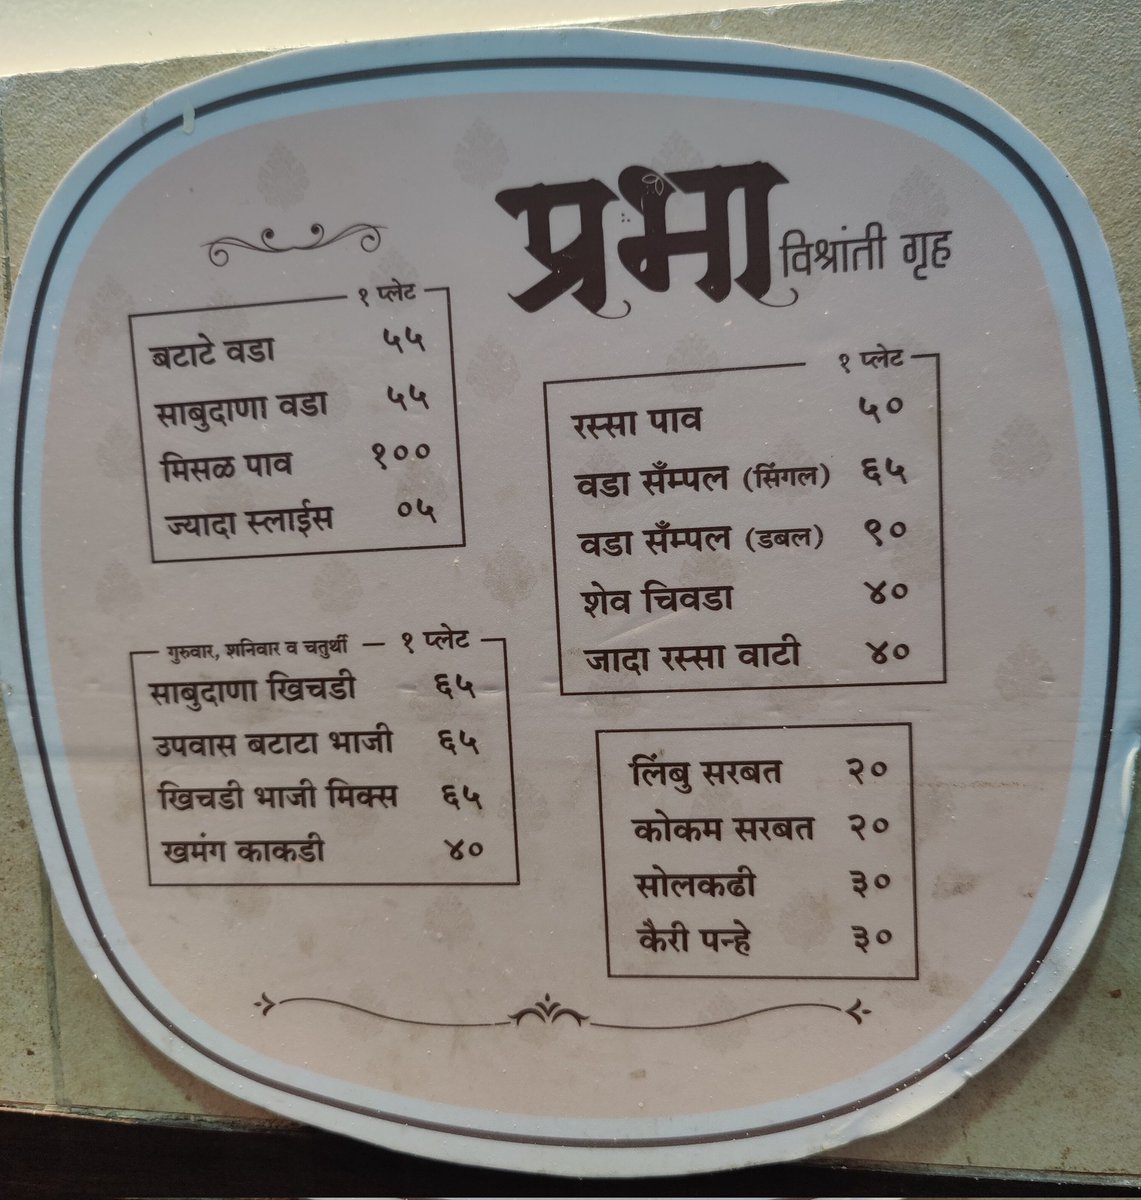 प्रभा विश्रांती गृह
१ प्लेट
बटाटे वडा ५५
साबुदाणा वडा ५५
मिसळ पाव १००
ज्यादा स्लाईस ०५
गुरुवार, शनिवार व चतुर्थी – १ प्लेट
साबुदाणा खिचडी ६५
उपवास बटाटा भाजी ६५
खिचडी भाजी मिक्स ६५
खमंग काकडी ४०
१ प्लेट
रस्सा पाव ५०
वडा सॅंम्पल (सिंगल) ६५
वडा सॅंम्पल (डबल) ९०
शेव चिवडा ४०
जादा रस्सा वाटी ४०
लिंबु सरबत २०
कोकम सरबत २०
सोलकढी ३०
कैरी पन्हे ३०